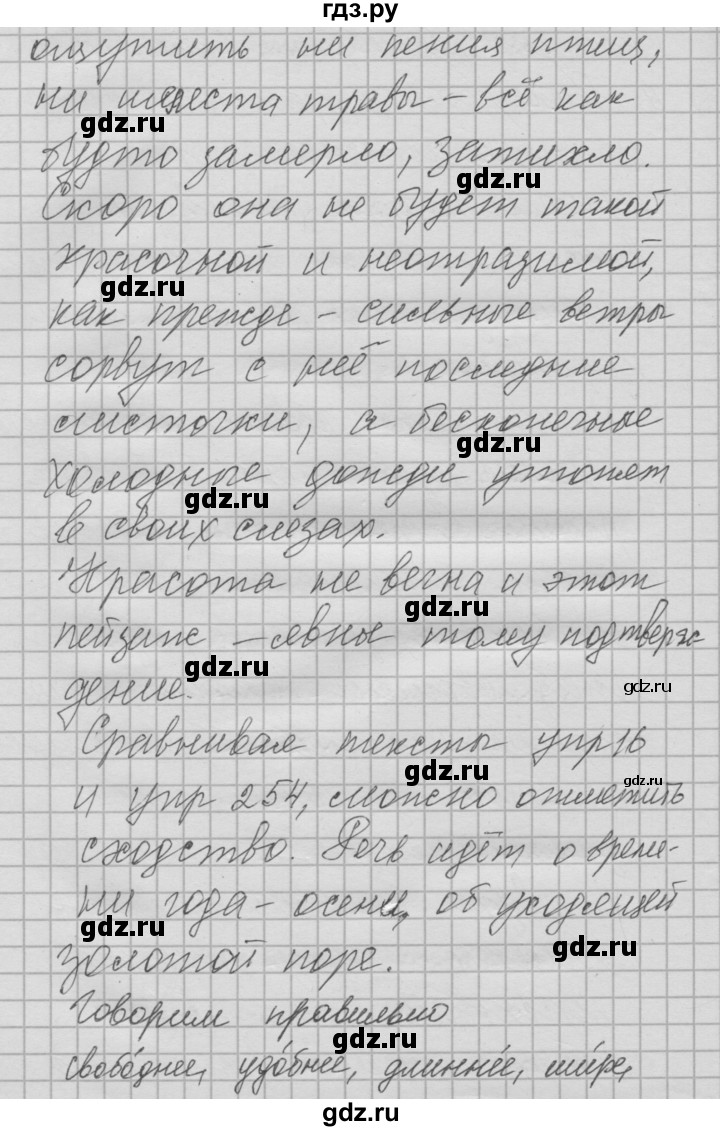 гдз.ру
ощутить ни пения птиц,
ни шелеста травы - всё как
gdz.ru
будто замерло, затихло.
gdz.ru
Скоро она не будет такой
красочной и неотразимой,
gdz.ru
как прежде - сильные ветры
gdz.ru
сорвут с неё последние
листочки, а бесконечные
gdz.ru
холодные дожди утопят
gdz.ru
в своих слезах.
Красота не вечна и этот
gdz.ru
пейзаж - явны тому подтверж
gdz.ru
дение.
gdz.ru
Сравнивая тексты упр 16
gdz.ru
и упр 254, можно отметить
gdz.ru
сходство. Речь идёт о време-
ни года - осени, об уходящей
gdz.ru
gdz.ru
золотой поре.
Говорим правильно
gdz.ru
свобо́днее, удо́бнее, длинне́е, ши́ре,
gdz.ru